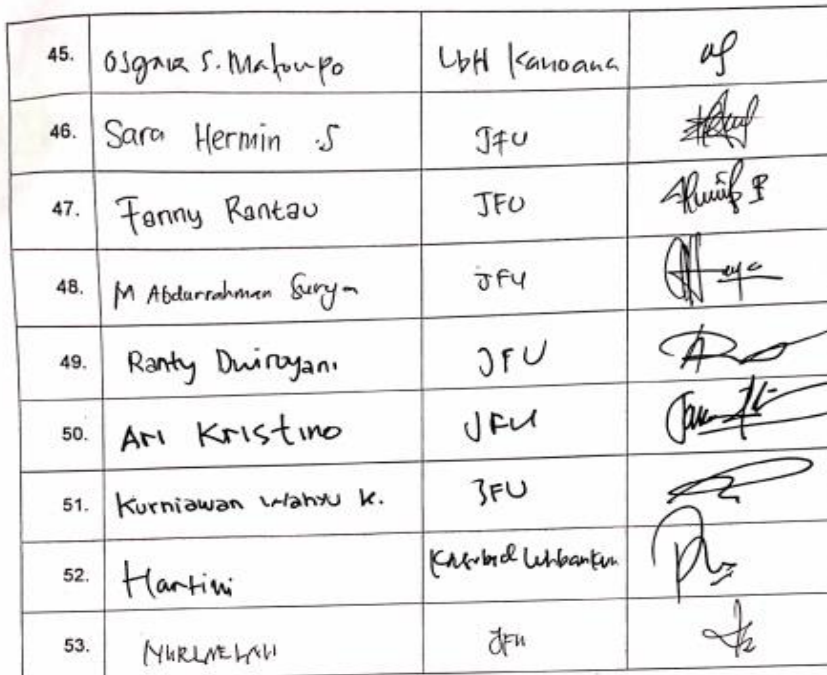 45. Osgnia S. Matoupo LbH Kanoana
46. Sara Hermin .S JFU
47. Fanny Rantau JFU
48. M Abdurrahman Surya JFU
49. Ranty Dwiroyani JFU
50. Ari Kristino JFU
51. Kurniawan Wahyu K. JFU
52. Hartini
53. JFU